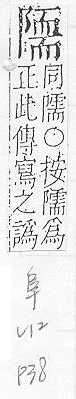 同隭○按隭為
正此傳寫之譌
阜
P38